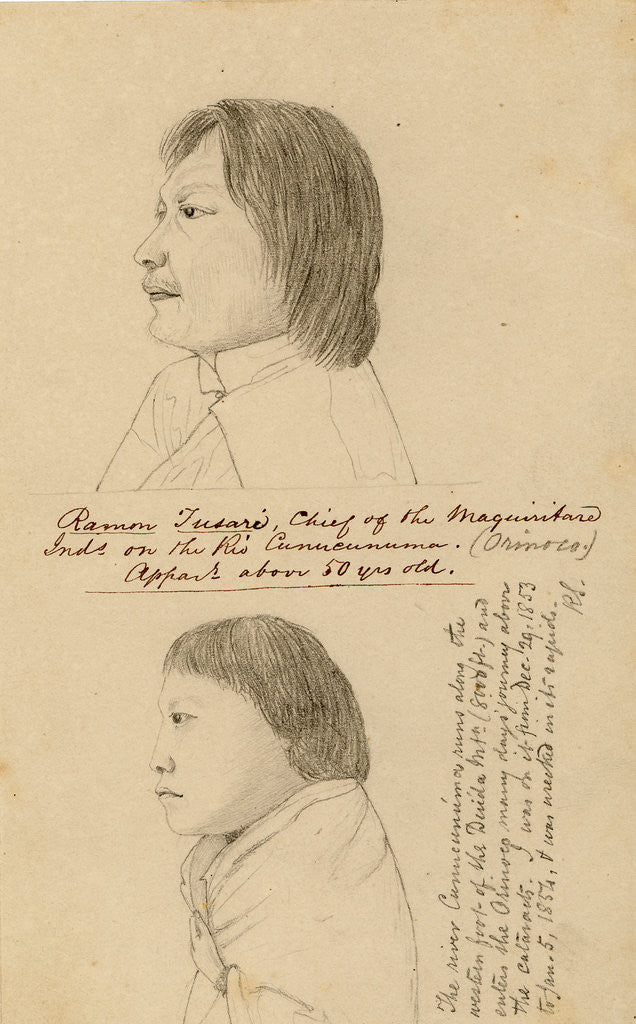 Ramon Tusarè, Chief of the Maquiritare
Inds on the Rio Cunucunuma. (Orinoco.)
Appart. above 50 yrs old.
The river Cunucunúma runs along the
western foot of the Duida Mtn (8000 ft.) and
enters the Orinoco many days' journey above
the cataracts. I was on it from Dec. 29, 1853
to Jan. 5, 1854, & was wrecked in its rapids.
RS.